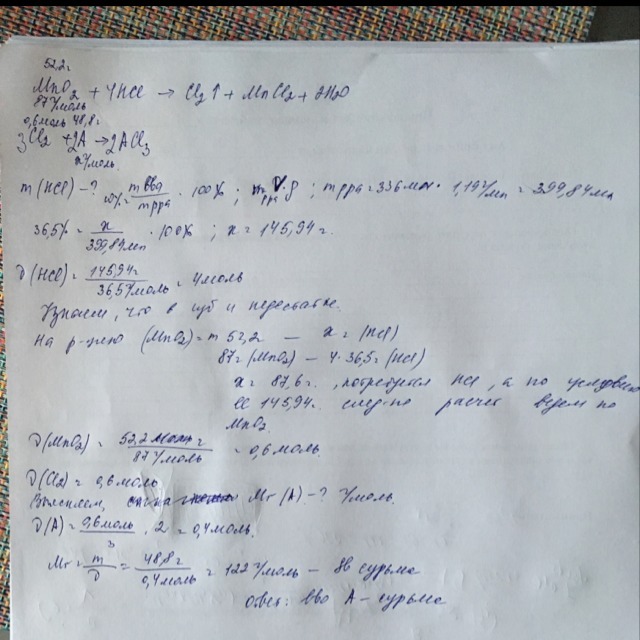 52,2г
MnO2 + 4HCl → Cl2↑ + MnCl2 + 2H2O
87г/моль
0,6моль 48,8г
3Cl2 + 2A → 2ACl3
x г/моль
m(HCl) - ? W% = mвва / mppa · 100% ; mppa = V·ρ ; mppa = 336мл · 1,19г/мл = 399,84мл
36,5% = x / 399,84мл · 100% ; x = 145,94г.
ν(HCl) = 145,94г / 36,5г/моль = 4моль
Узнаем, что в изб и недостатке.
на р-цию (MnO2) = m 52,2 — x г (HCl)
87г (MnO2) — 4·36,5г (HCl)
x = 87,6г. потребуется HCl, а по условию
ее 145,94г. след-но расчет ведем по
MnO2
ν(MnO2) = 52,2г / 87г/моль = 0,6моль.
ν(Cl2) = 0,6моль
Mr(A) - ? г/моль.
ν(A) = 0,6моль / 3 · 2 = 0,4моль.
Mr = m / ν = 48,8г / 0,4моль = 122г/моль — Sb сурьма
Ответ: вво A - сурьма